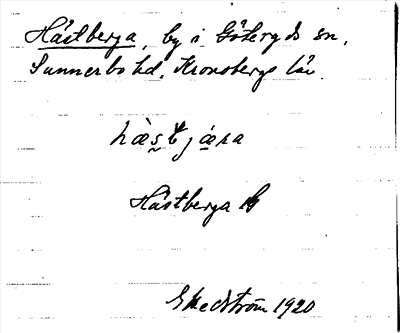 Hästberga, by i Göteryds sn,
Sunnerbo hd, Kronobergs län
hàstjára
Hästberga
Ekedström 1920